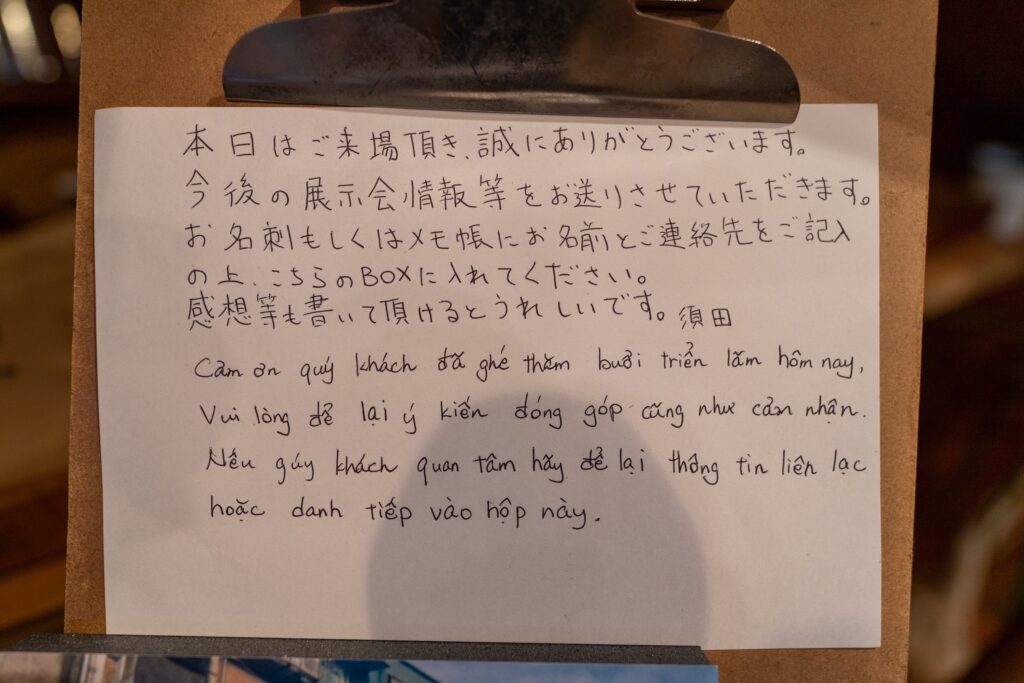 本日はご来場頂き、誠にありがとうございます。
今後の展示会情報等をお送りさせていただきます。
お名刺もしくはメモ帳にお名前とご連絡先をご記入
の上、こちらのBOXに入れてください。
感想等も書いて頂けるとうれしいです。須田
Cảm ơn quý khách đã ghé thăm buổi triển lãm hôm nay,
Vui lòng để lại ý kiến đóng góp cũng như cảm nhận.
Nếu qúy khách quan tâm hãy để lại thông tin liên lạc
hoặc danh tiếp vào hộp này.